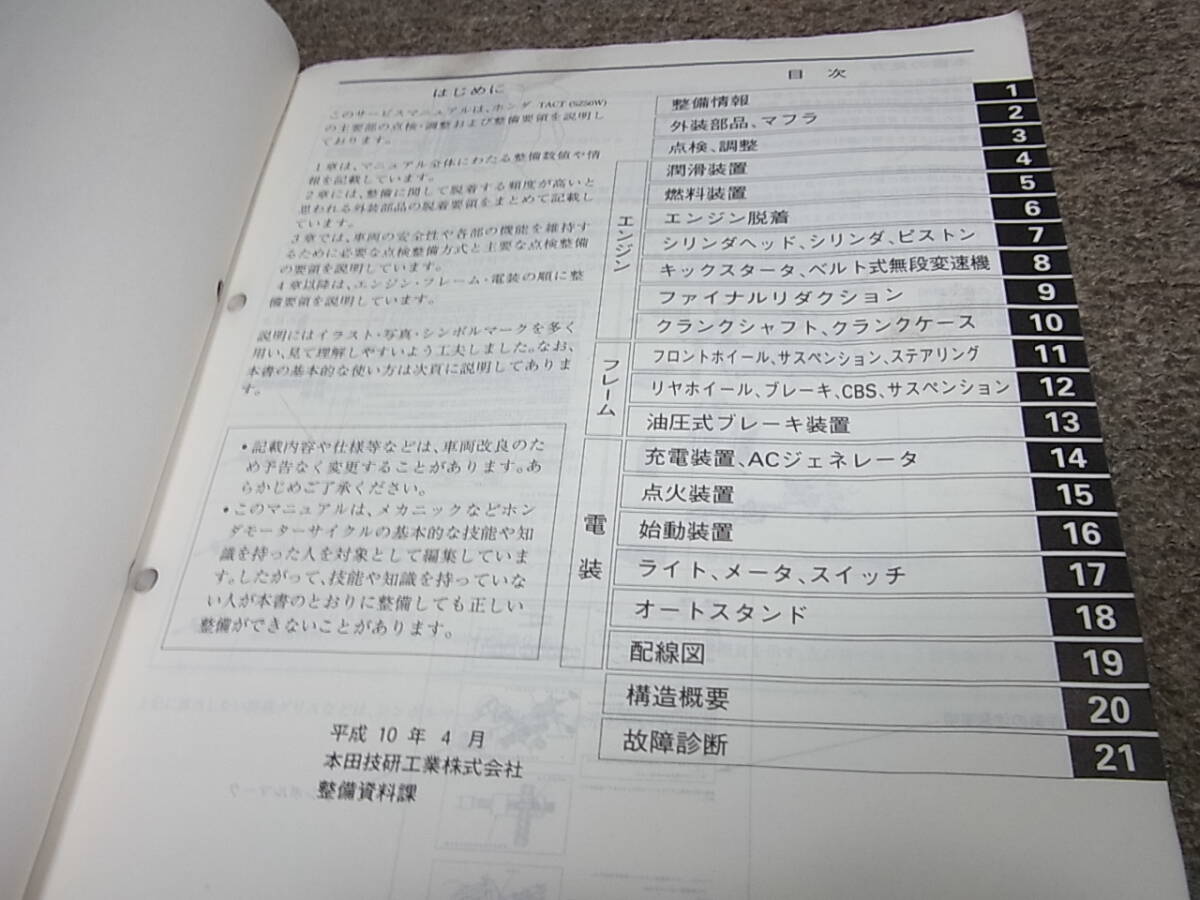 はじめに
このサービスマニュアルは、ホンダ TACT (SZ50W)
の主要部の点検・調整および整備要領を説明し
ております。
1章は、マニュアル全体にわたる整備数値や情
報を記載しています。
2章には、整備に関して脱着する頻度が高いと
思われる外装部品の脱着要領をまとめて記載し
ています。
3章では、車両の安全性や各部の機能を維持す
るために必要な点検整備方式と主要な点検整備
の要領を説明しています。
4章以降は、エンジン・フレーム・電装の順に整
備要領を説明しています。
説明にはイラスト・写真・シンボルマークを多く
用い、見て理解しやすいよう工夫しました。なお、
本書の基本的な使い方は次頁に説明してありま
す。
・記載内容や仕様等などは、車両改良のた
め予告なく変更することがあります。あ
らかじめご了承ください。
・このマニュアルは、メカニックなどホン
ダモーターサイクルの基本的な技能や知
識を持った人を対象として編集していま
す。したがって、技能や知識を持っていな
い人が本書のとおりに整備しても正しい
整備ができないことがあります。
平成 10 年 4 月
本田技研工業株式会社
整備資料課
目 次
整備情報 1
外装部品、マフラ 2
点検、調整 3
エンジン
潤滑装置 4
燃料装置 5
エンジン脱着 6
シリンダヘッド、シリンダ、ピストン 7
キックスタータ、ベルト式無段変速機 8
ファイナルリダクション 9
クランクシャフト、クランクケース 10
フレーム
フロントホイール、サスペンション、ステアリング 11
リヤホイール、ブレーキ、CBS、サスペンション 12
油圧式ブレーキ装置 13
電装
充電装置、ACジェネレータ 14
点火装置 15
始動装置 16
ライト、メータ、スイッチ 17
オートスタンド 18
配線図 19
構造概要 20
故障診断 21